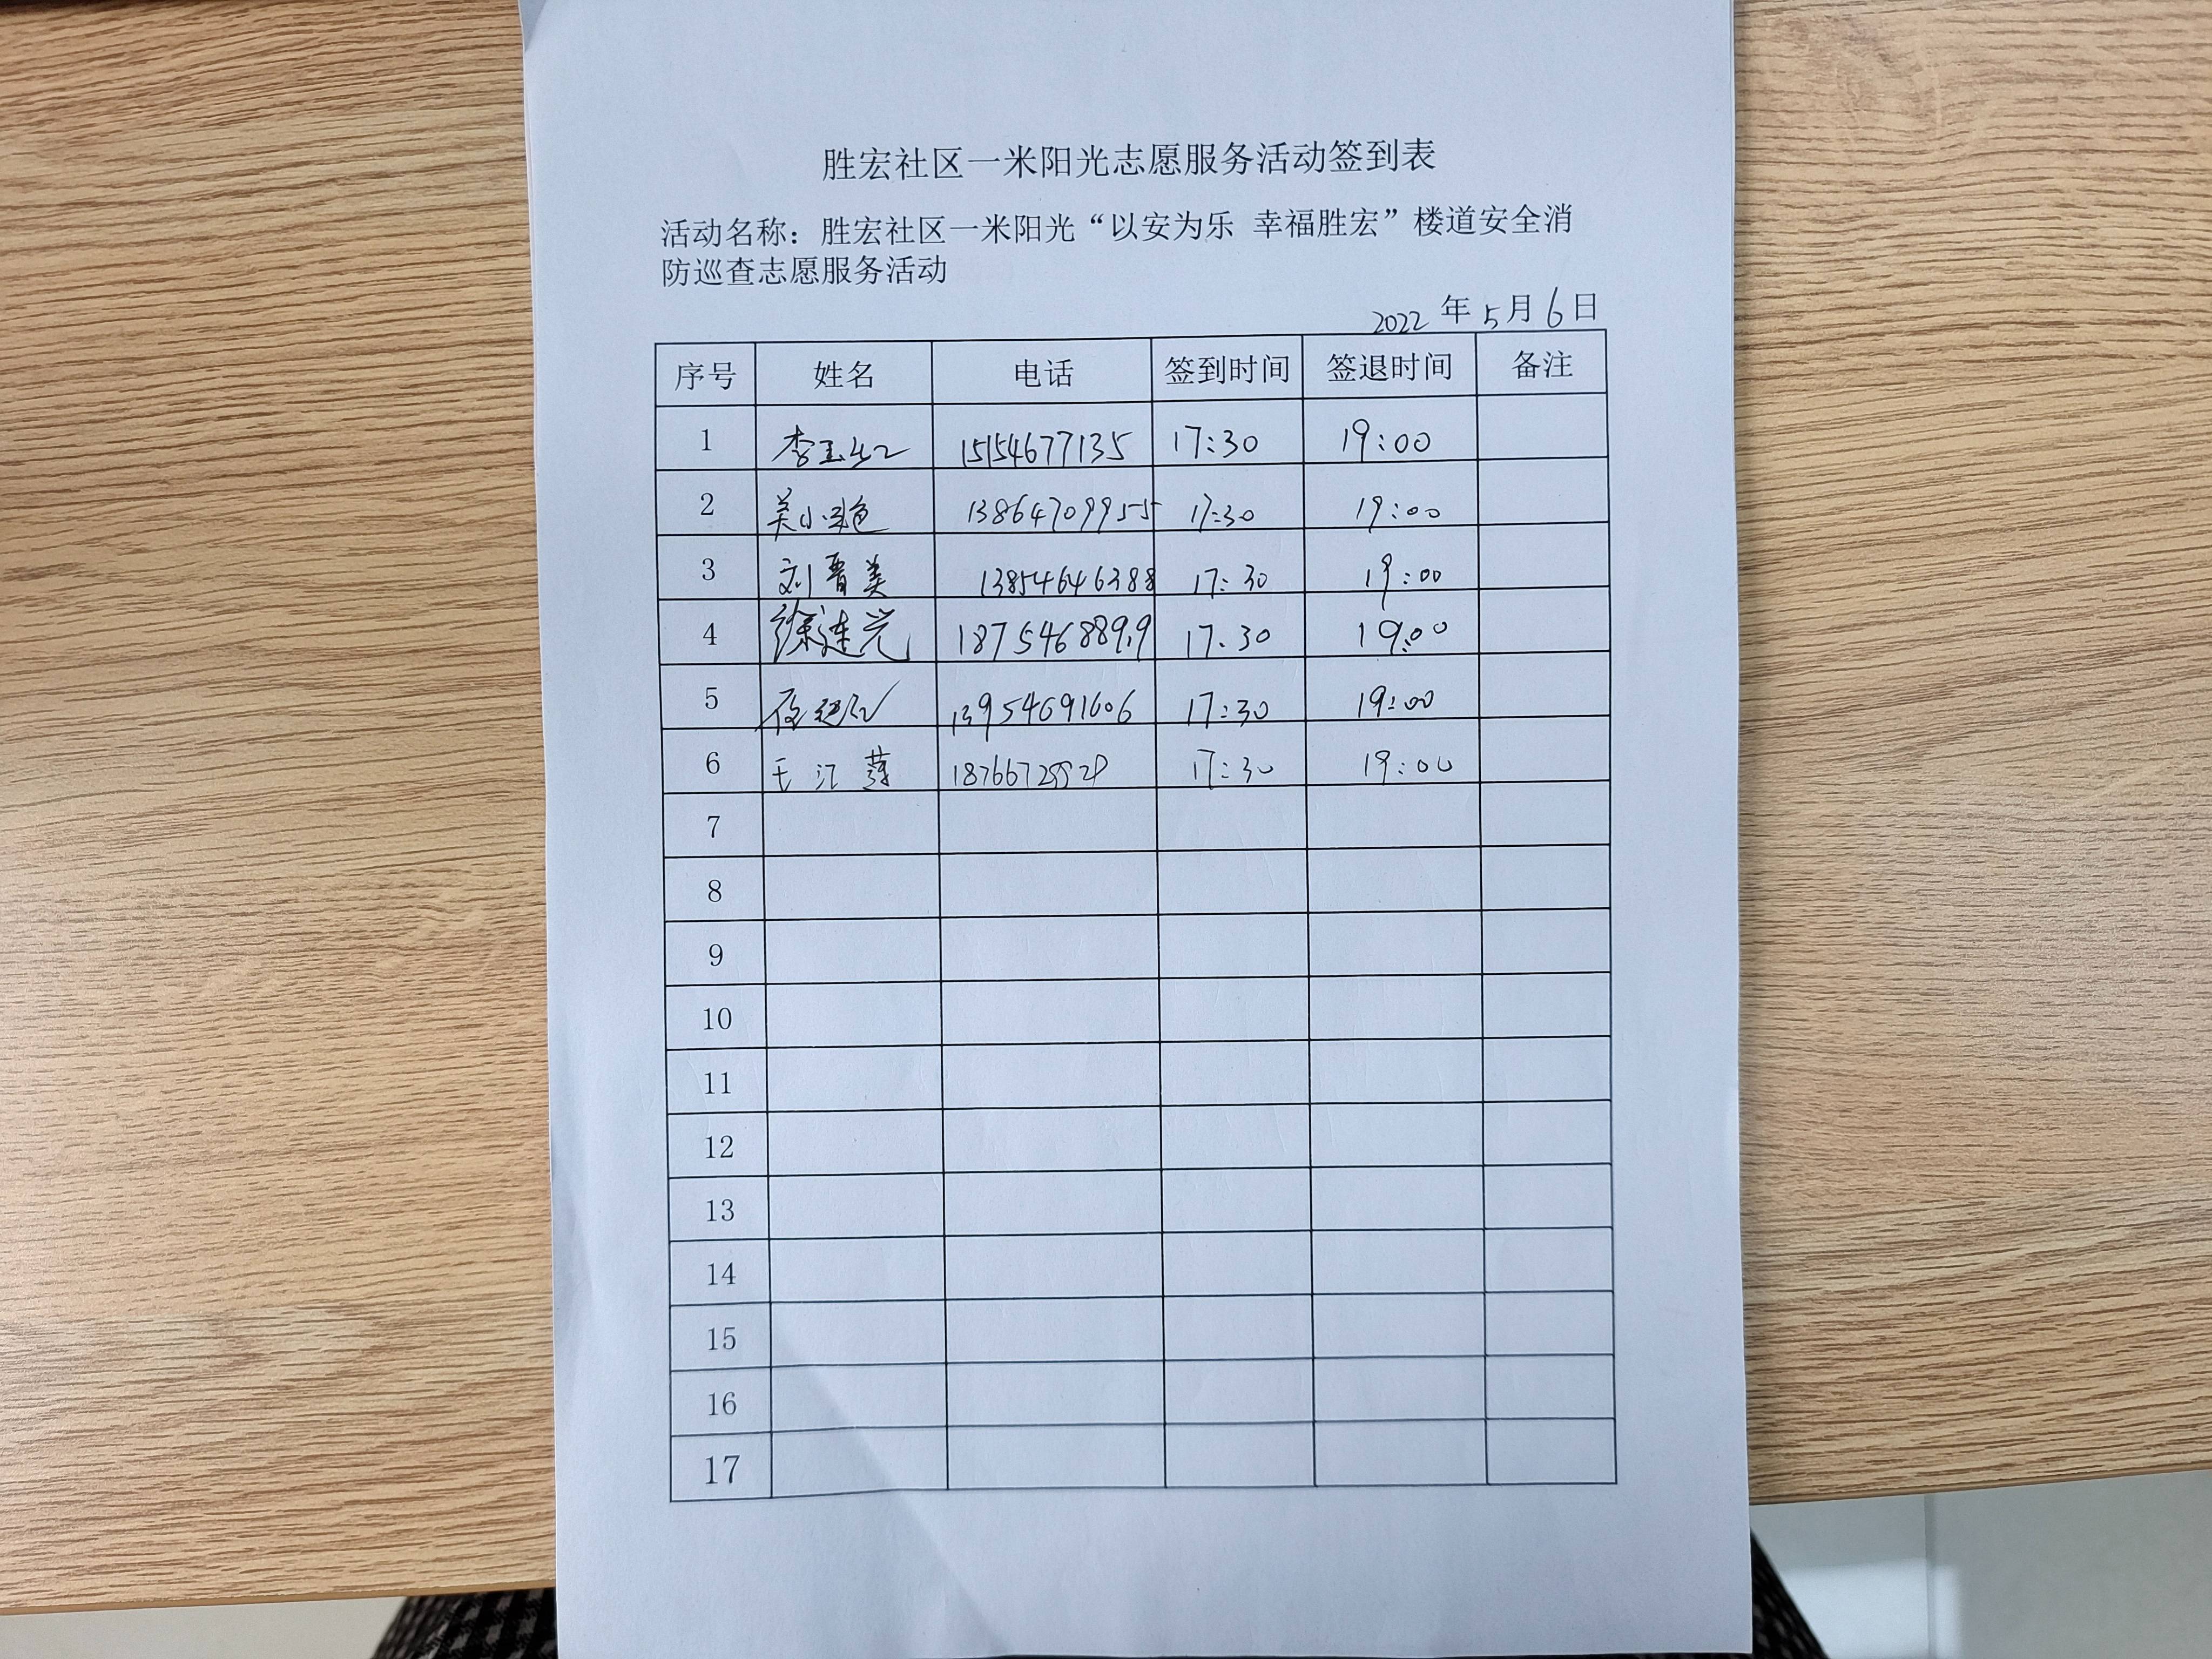 胜宏社区一米阳光志愿服务活动签到表
活动名称：胜宏社区一米阳光“以安为乐 幸福胜宏”楼道安全消
防巡查志愿服务活动
2022 年 5 月 6 日
序号 姓名 电话 签到时间 签退时间 备注
1 李玉红 15154677135 17:30 19:00
2 13864709955 17:30 19:00
3 刘晋美 13854646388 17:30 19:00
4 徐连光 18754688919 17:30 19:00
5 13954691606 17:30 19:00
6 王江莲 17:30 19:00
7
8
9
10
11
12
13
14
15
16
17